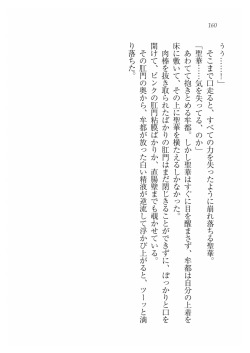 160
うう……！」
そこまで口走ると、すべての力を失ったように崩れ落ちる聖華。
「聖華……気を失ってる、のか」
あわてて抱きとめる牟都。しかし聖華はすぐに目を醒まさず、牟都は自分の上着を
床に敷いて、その上に聖華を横たえるしかなかった。
肉棒を抜き取られたばかりの肛門はまだ閉じきることができずに、ぽっかりと口を
開けて、ピンクの肛門粘膜ばかりか、直腸壁までも覗かせている。
その肛門の奥から、牟都が放った白い精液が逆流して浮かび上がると、ツーッと滴
り落ちた。